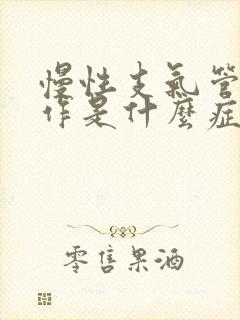 慢性支氣管
作是什麼症
零售果酒